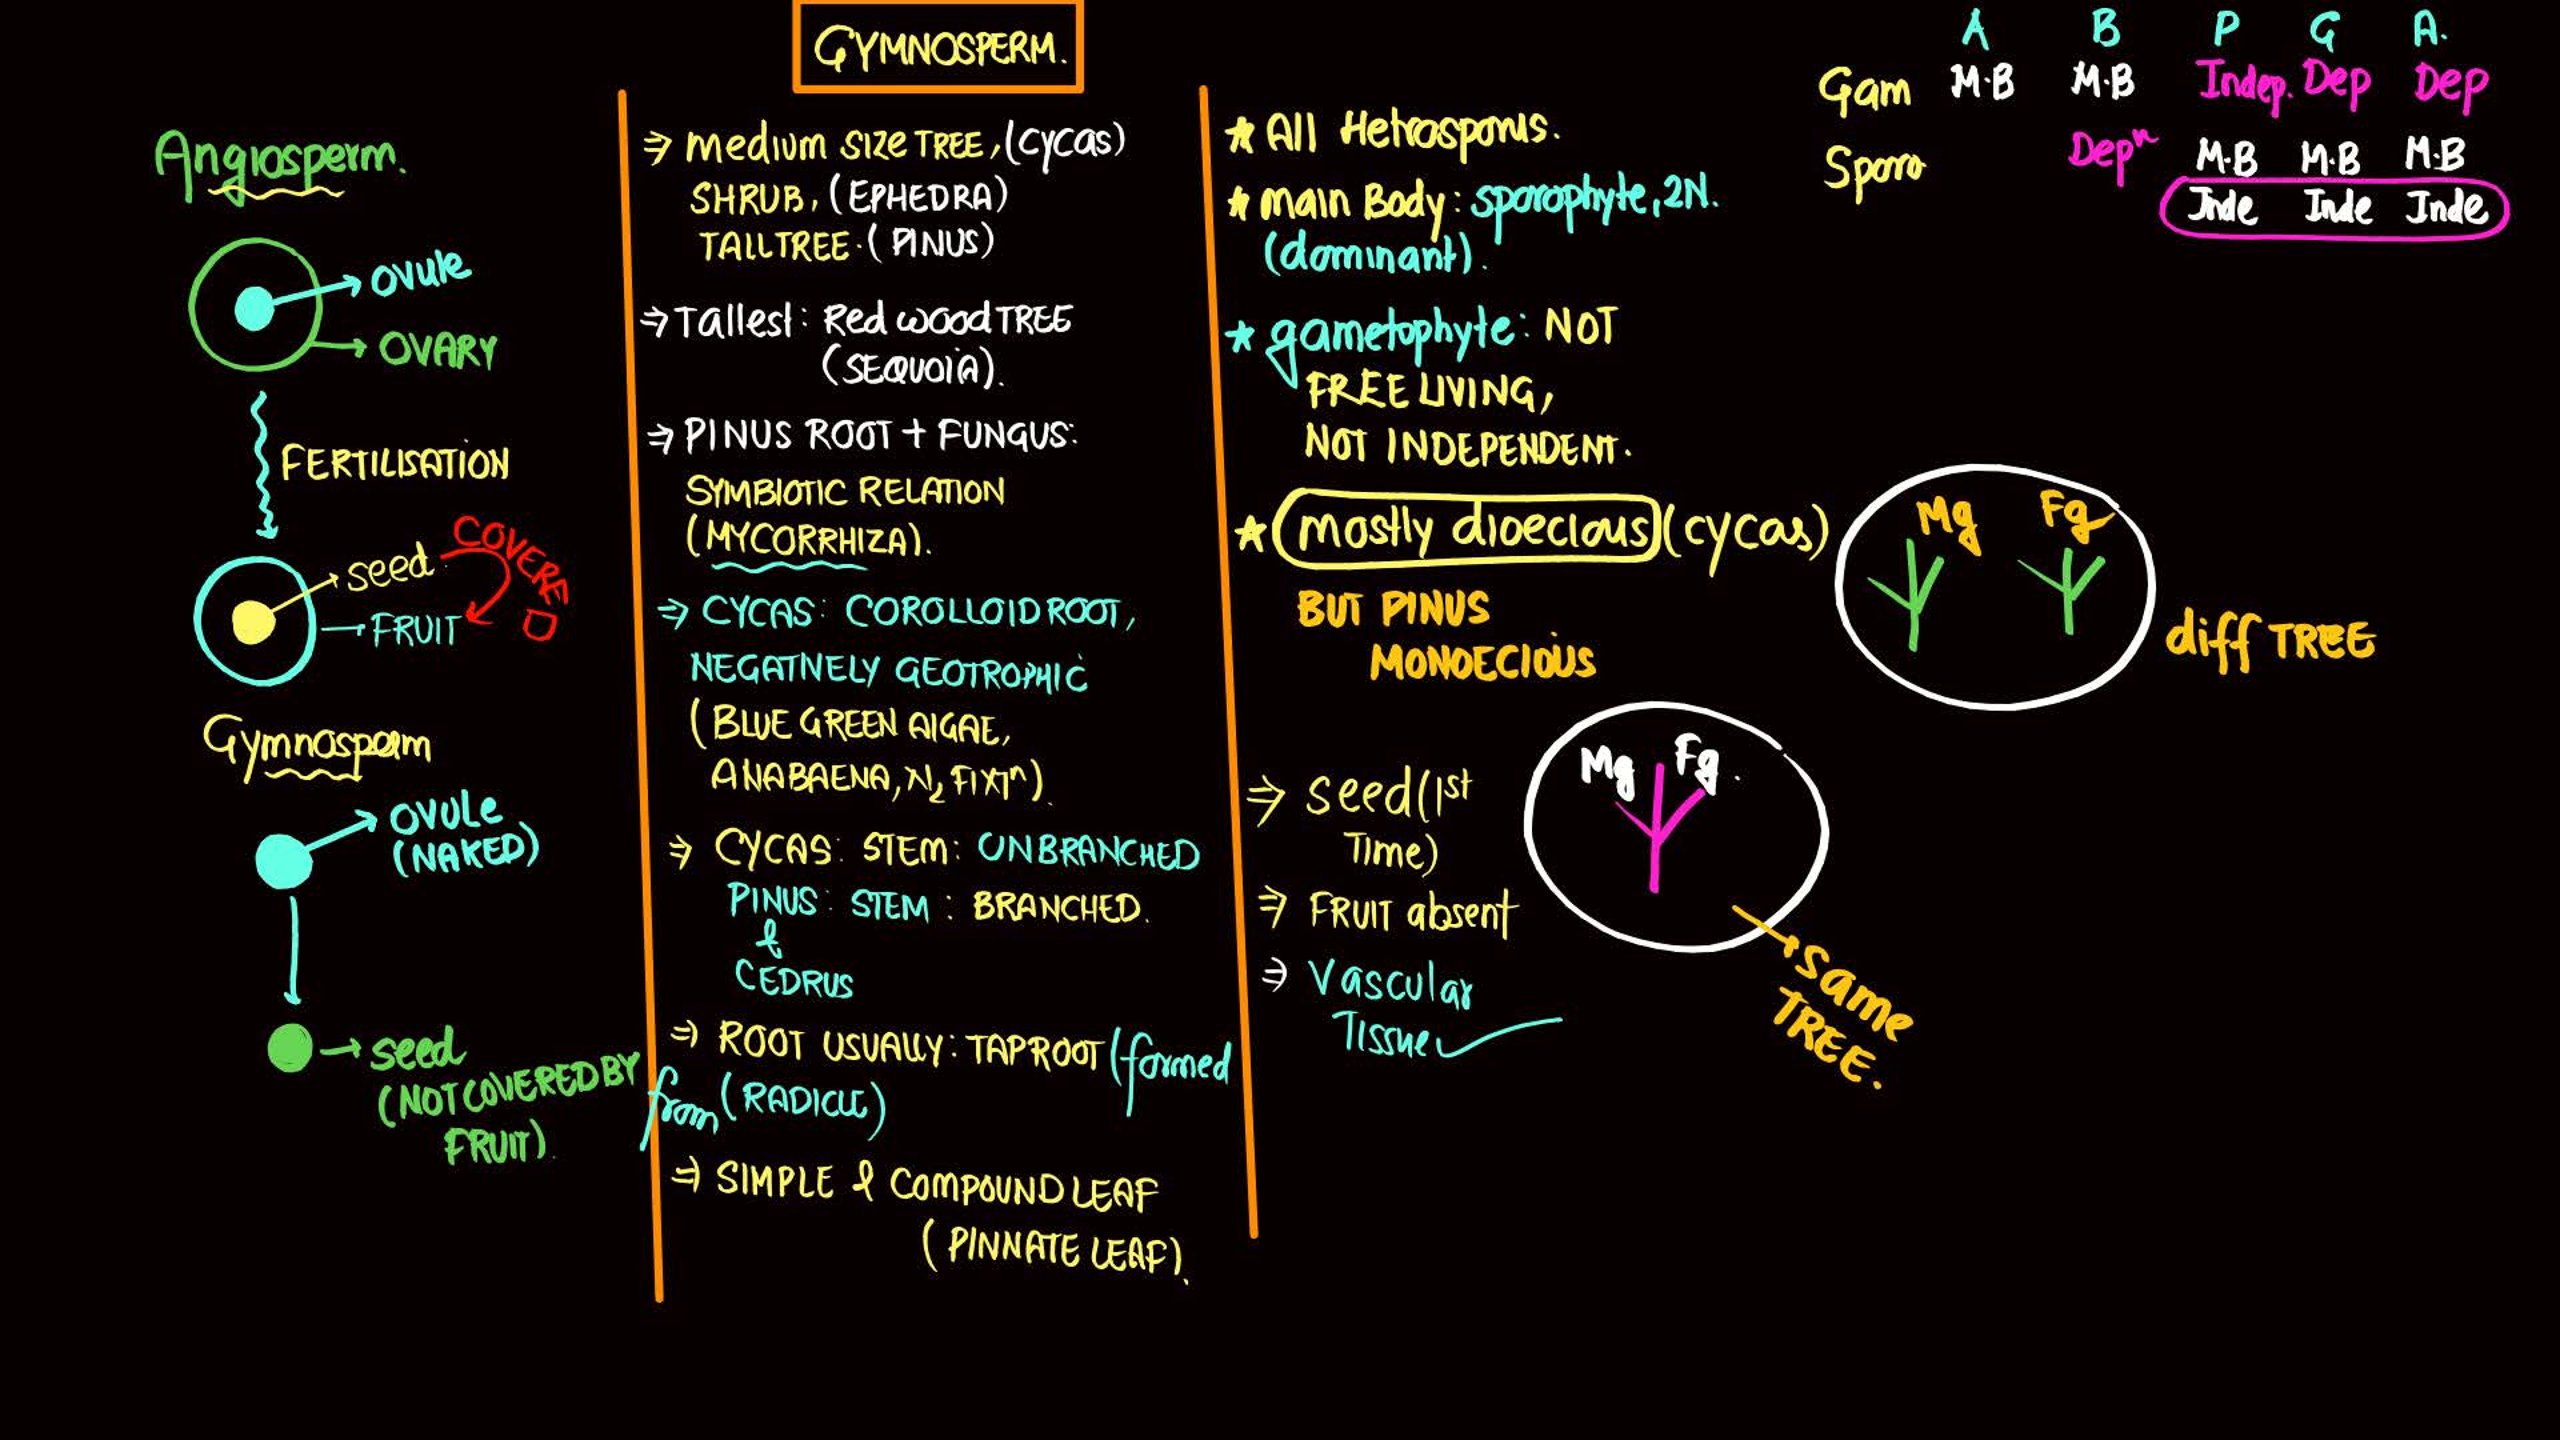 GYMNOSPERM.
Angiosperm.
OVULE
OVARY
FERTILISATION
SEED
COVERED
FRUIT
Gymnosperm
OVULE
(NAKED)
seed
(NOT COVERED BY
FRUIT).
⇒ medium SIZE TREE, (cycas)
SHRUB, (EPHEDRA)
TALL TREE. (PINUS)
⇒ Tallest: Red wood TREE
(SEQUOIA).
⇒ PINUS ROOT + FUNGUS:
SYMBIOTIC RELATION
(MYCORRHIZA).
⇒ CYCAS: COROLLOID ROOT,
NEGATIVELY GEOTROPHIC
(BLUE GREEN ALGAE,
ANABAENA, N2 FIXTn).
⇒ CYCAS: STEM: UNBRANCHED
PINUS: STEM: BRANCHED.
&
CEDRUS
⇒ ROOT USUALLY: TAPROOT (formed
from (RADICLE)
⇒ SIMPLE & COMPOUND LEAF
(PINNATE LEAF).
★ All Hetrosporus.
★ main Body: sporophyte, 2N.
(dominant).
★ gametophyte: NOT
FREE LIVING,
NOT INDEPENDENT.
★ mostly dioecious (cycas)
BUT PINUS
MONOECIOUS
Mg Fg
diff TREE
Mg Fg.
same
TREE.
⇒ seed (1st
Time)
⇒ FRUIT absent
⇒ Vascular
Tissue
A B P G A.
Gam M.B M.B Indep. Dep Dep
Sporo Depn M.B M.B M.B
Inde Inde Inde